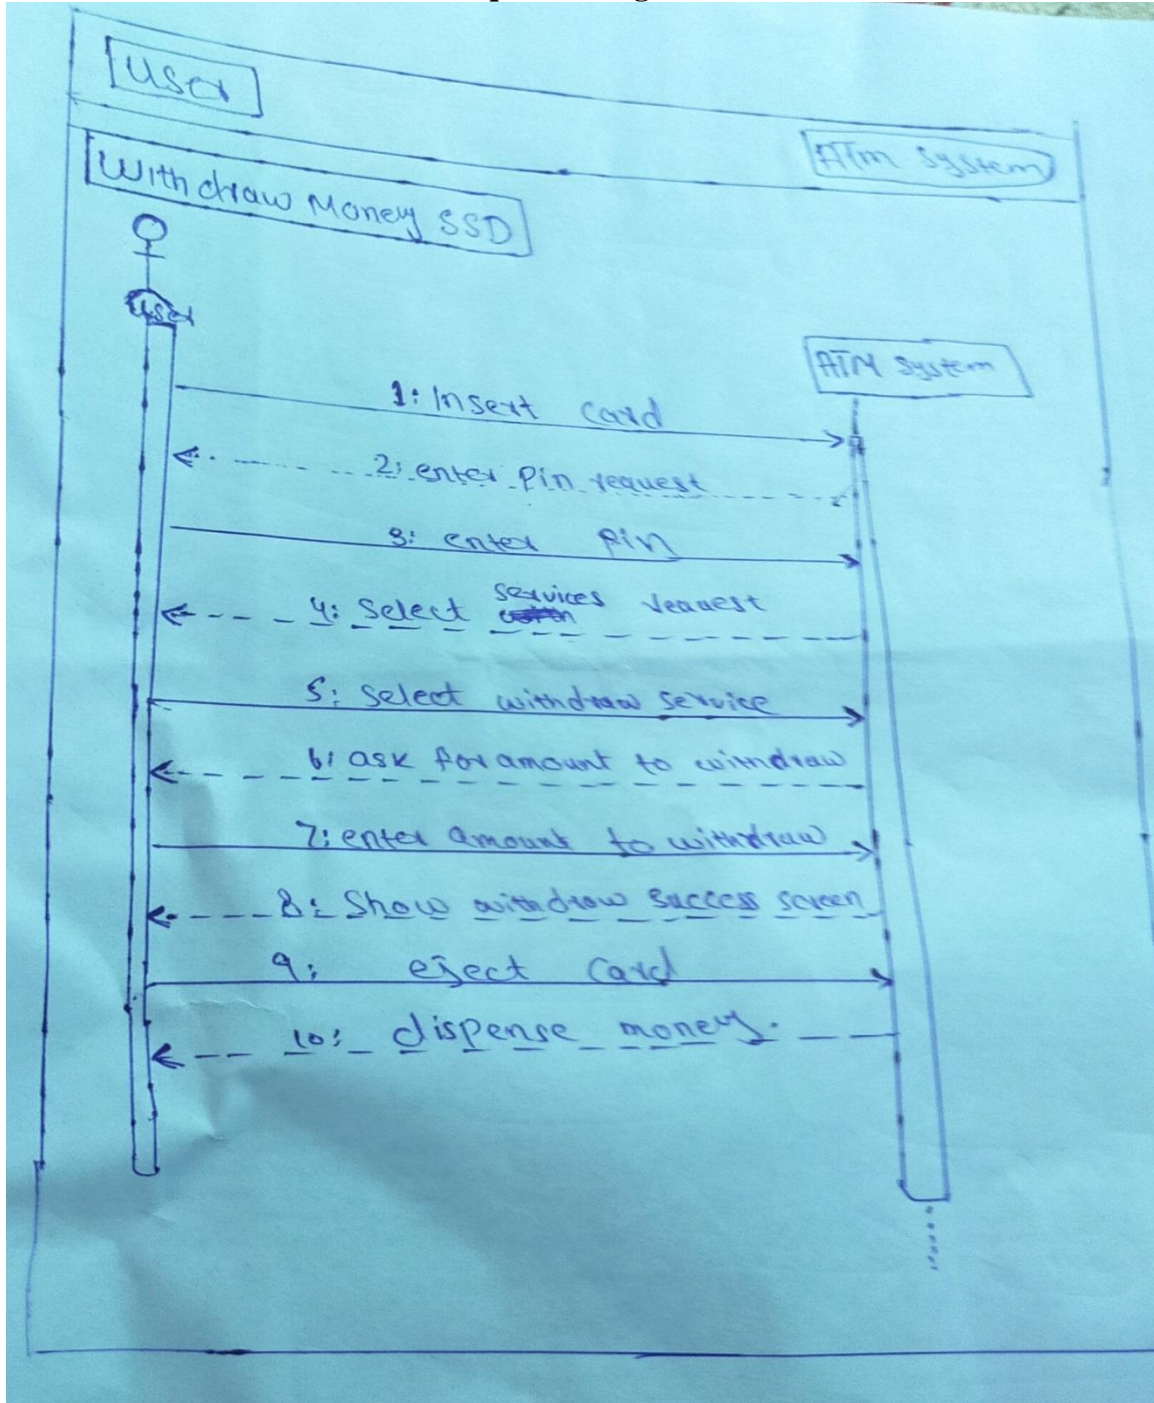 User
ATM System
Withdraw Money SSD
user
ATM System
1: Insert card
2: enter pin request
3: enter pin
4: Select services request
5: Select withdraw service
6: ask for amount to withdraw
7: enter amount to withdraw
8: Show withdraw success screen
9: eject card
10: dispense money.